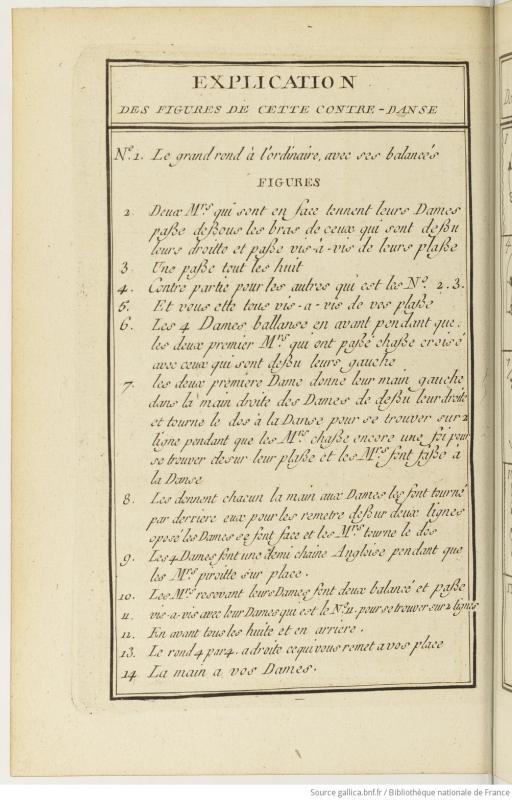 EXPLICATION
DES FIGURES DE CETTE CONTRE-DANSE
No. 1. Le grand rond à l'ordinaire, avec ses balancés
FIGURES
2 Deux Mrs qui sont en face tennent leurs Dames
paße deßous les bras de ceux qui sont deßu
leurs droitte et paße vis-à-vis de leurs plaße
3 Une paße tout les huit
4. Contre partie pour les autres qui est les No. 2.3.
5. Et vous ette tous vis-a-vis de vos plaße
6. Les 4 Dames ballanse en avant pendant que
les deux premier Mrs qui ont paßé chaße croisé
avec ceux qui sont deßu leurs gauche
7. les deux premiere Dame donne leur main gauche
dans la main droite des Dames de deßu leur droite
et tourne le dos à la Danse pour se trouver sur 2
ligne pendant que les Mrs chaße encore une foi pour
se trouver desur leur plaße et les Mrs font faße à
la Danse
8. Les donnent chacun la main aux Dames les font tourné
par derriere eux pour les remetre deßur deux lignes
oposé les Dames se font face et les Mrs tourne le dos
9. Les 4 Dames font une demi chaine Angloise pendant que
les Mrs piroitte sur place.
10. Les Mrs recevant leurs Dames font deux balancé et paße
11. vis-a-vis avec leur Dames qui est le No 11. pour se trouver sur 2 lignes
12. En avant tous les huite et en arriere.
13. Le rond 4 par 4. a droite ce qui vous remet a vos place
14 La main a vos Dames.
Source gallica.bnf.fr / Bibliothèque nationale de France